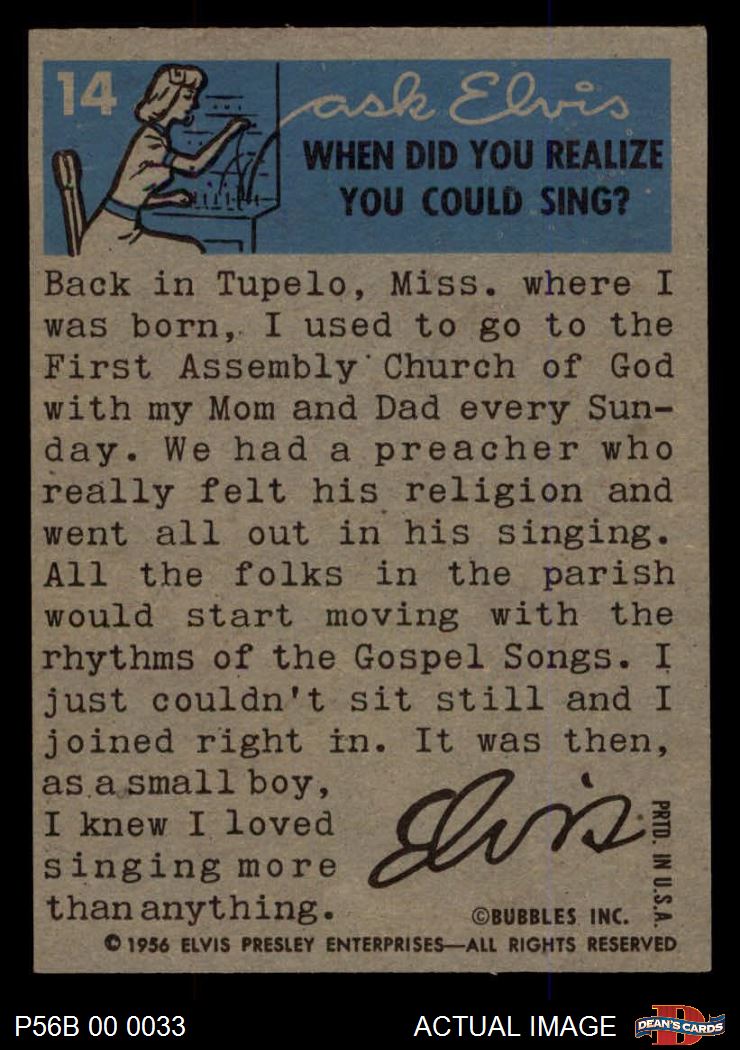 14
ask Elvis
WHEN DID YOU REALIZE
YOU COULD SING?
Back in Tupelo, Miss. where I
was born, I used to go to the
First Assembly Church of God
with my Mom and Dad every Sun-
day. We had a preacher who
really felt his religion and
went all out in his singing.
All the folks in the parish
would start moving with the
rhythms of the Gospel Songs. I
just couldn't sit still and I
joined right in. It was then,
as a small boy,
I knew I loved
singing more
than anything.
Elvis
PRTD. IN U.S.A.
©BUBBLES INC.
© 1956 ELVIS PRESLEY ENTERPRISES—ALL RIGHTS RESERVED
P56B 00 0033
ACTUAL IMAGE
D
DEAN'S CARDS